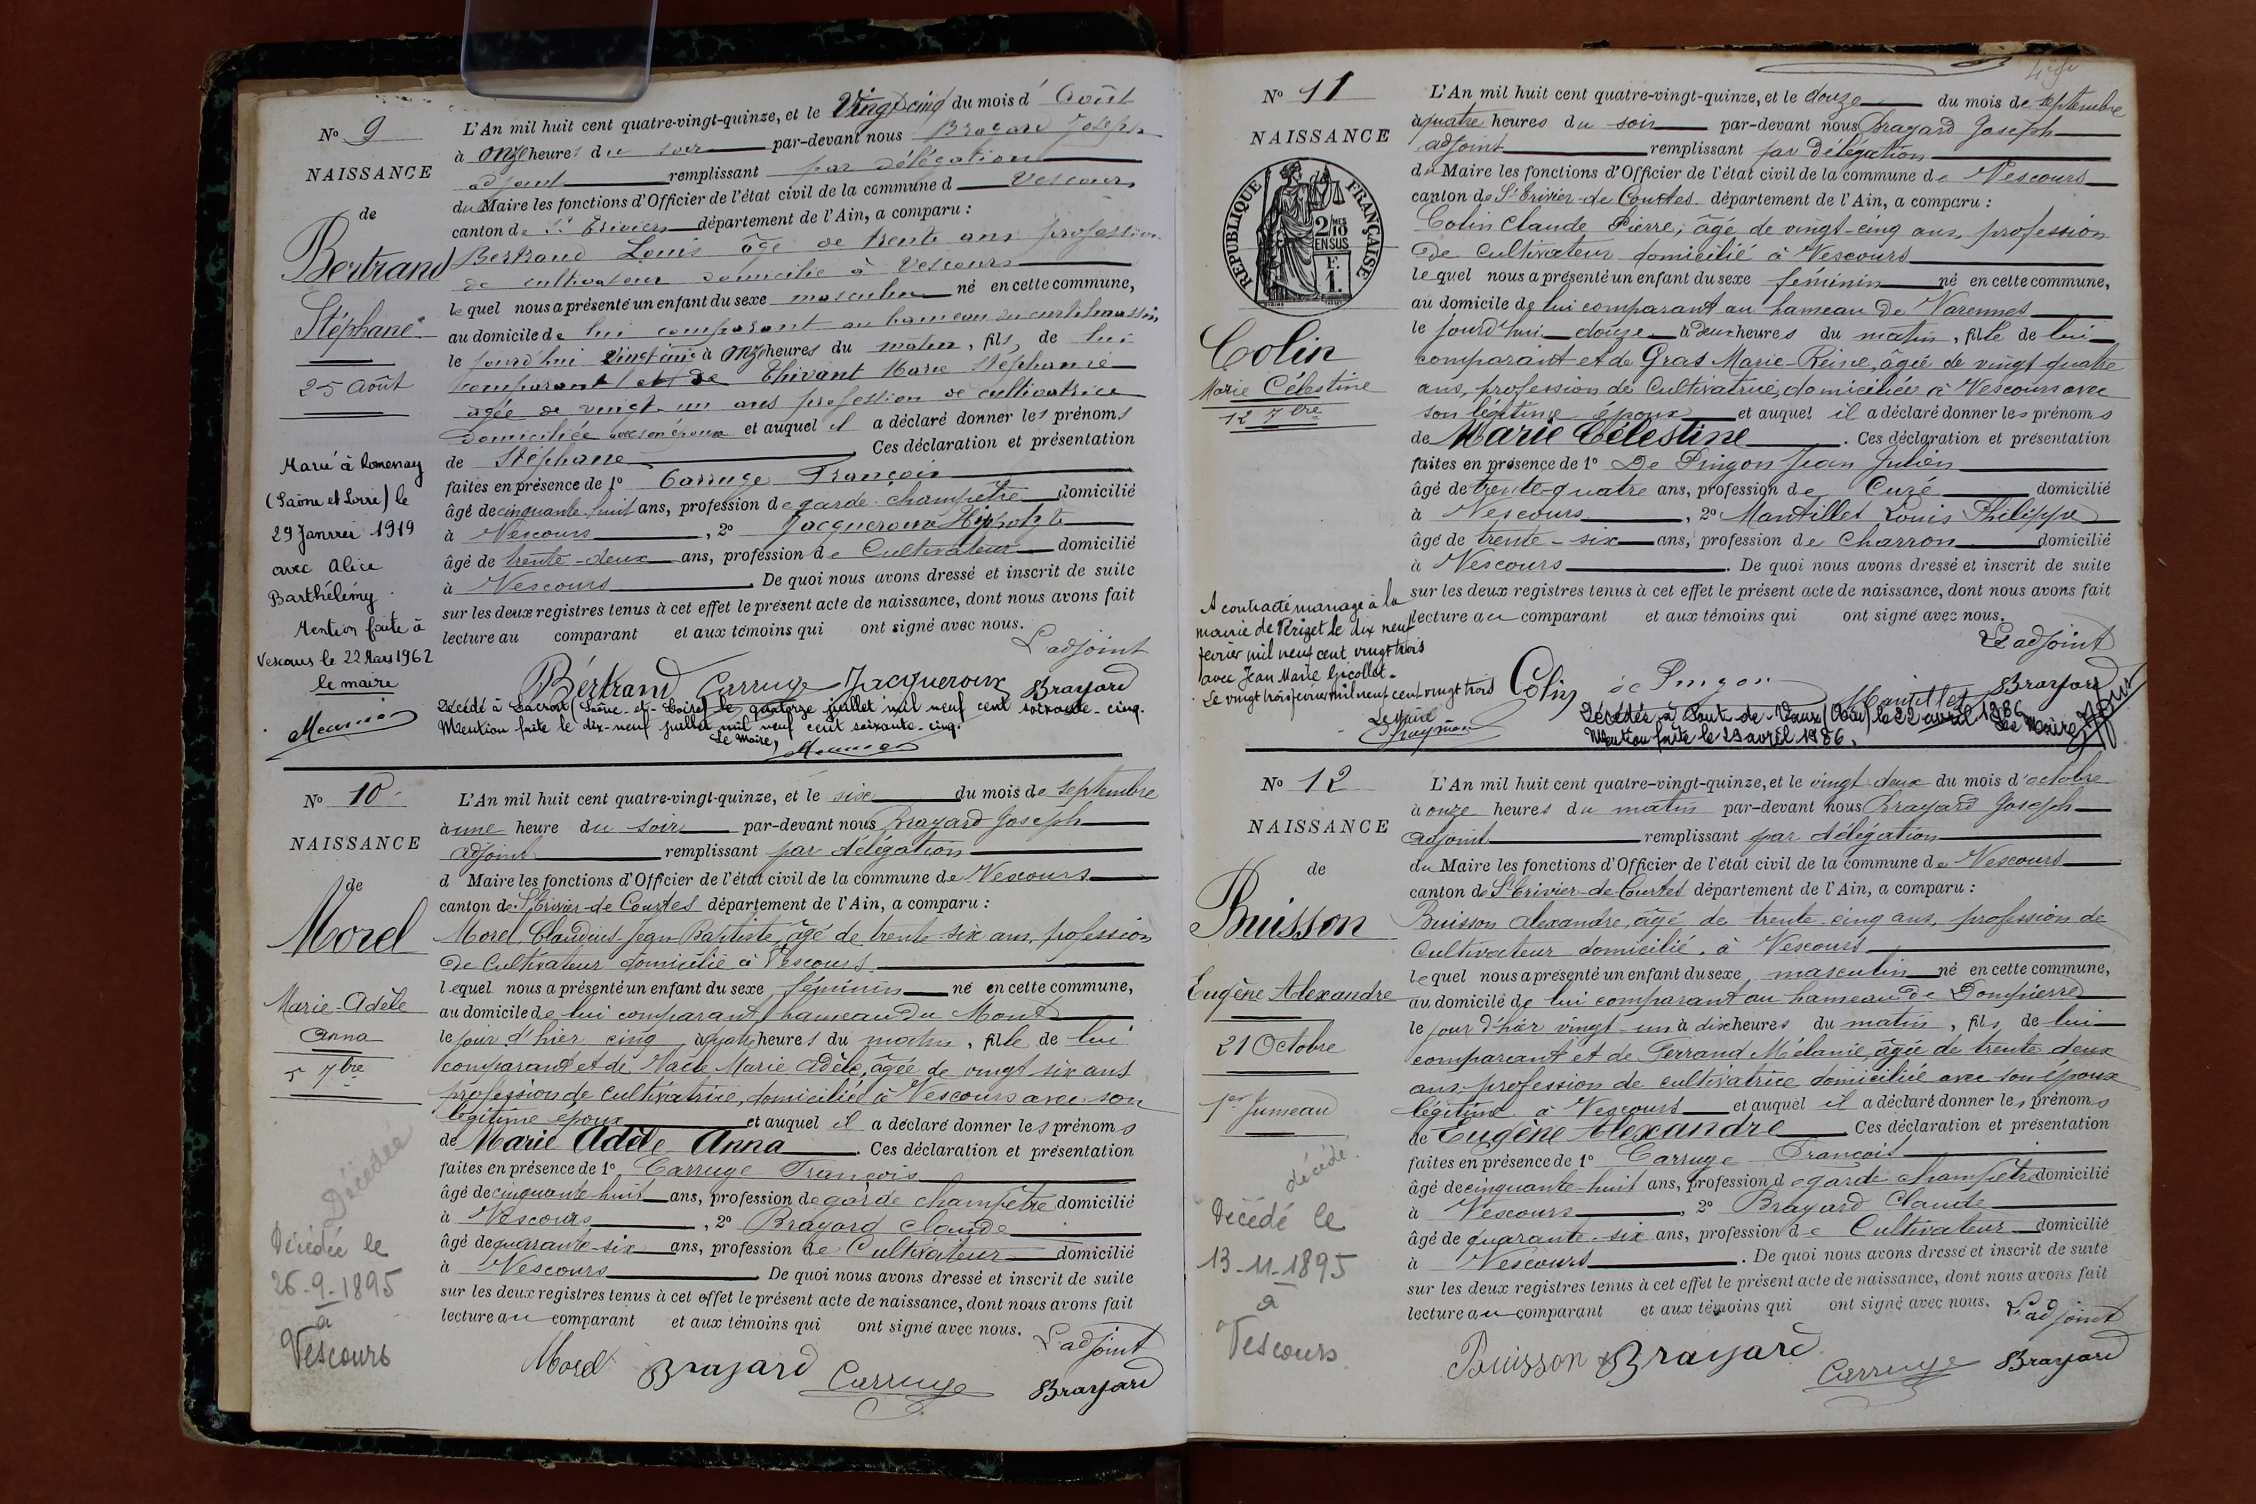 Nº 9
NAISSANCE
de
Bertrand
Stéphane
25 Août
Marié à Romenay
(Saône et Loire) le
29 Janvier 1919
avec Alice
Barthélémy.
Mention faite à
Vescours le 22 Mars 1962
le maire
L'An mil huit cent quatre-vingt-quinze, et le Vingt cinq du mois d' Août
à onze heures du soir par-devant nous Brayard Joseph
adjoint remplissant par délégation
du Maire les fonctions d'Officier de l'état civil de la commune d Vescours
canton de St Trivier département de l'Ain, a comparu :
Bertrand Louis âgé de trente ans profession
de cultivateur domicilié à Vescours
lequel nous a présenté un enfant du sexe masculin né en cette commune,
au domicile de lui comparant au hameau du
le jourd'hui vingt cinq à onze heures du matin, fils, de lui
comparant et de Thivant Marie Stéphanie
âgée de vingt-un ans profession de cultivatrice
domiciliée avec son époux et auquel il a déclaré donner les prénoms
de Stéphane Ces déclaration et présentation
faites en présence de 1º Carruge François
âgé de cinquante-huit ans, profession de garde-champêtre domicilié
à Vescours, 2º Jacqueroux Hippolyte
âgé de trente-deux ans, profession de Cultivateur domicilié
à Vescours. De quoi nous avons dressé et inscrit de suite
sur les deux registres tenus à cet effet le présent acte de naissance, dont nous avons fait
lecture au comparant et aux témoins qui ont signé avec nous.
L'adjoint
Bertrand Carruge Jacqueroux Brayard
Décédé à Lacrost (Saône-et-Loire) le quatorze juillet mil neuf cent soixante-cinq.
Mention faite le dix-neuf juillet mil neuf cent soixante-cinq.
Le Maire,
Nº 10
NAISSANCE
de
Morel
Marie-Adèle
Anna
5 7bre
Décédée
Décédée le
26-9-1895
à
Vescours
L'An mil huit cent quatre-vingt-quinze, et le six du mois de septembre
à une heure du soir par-devant nous Brayard Joseph
adjoint remplissant par délégation
d Maire les fonctions d'Officier de l'état civil de la commune de Vescours
canton de St Trivier-de-Courtes département de l'Ain, a comparu :
Morel Claudius Jean Baptiste, âgé de trente-six ans, profession
de Cultivateur domicilié à Vescours.
lequel nous a présenté un enfant du sexe féminin né en cette commune,
au domicile de lui comparant hameau du Mont
le jour d'hier cinq à quatre heures du matin, fille de lui
comparant et de Nacle Marie Adèle, âgée de vingt six ans
profession de cultivatrice, domiciliée à Vescours avec son
légitime époux et auquel il a déclaré donner les prénoms
de Marie Adèle Anna. Ces déclaration et présentation
faites en présence de 1º Carruge François
âgé de cinquante-huit ans, profession de garde champêtre domicilié
à Vescours, 2º Brayard Claude
âgé de quarante-six ans, profession de Cultivateur domicilié
à Vescours De quoi nous avons dressé et inscrit de suite
sur les deux registres tenus à cet effet le présent acte de naissance, dont nous avons fait
lecture au comparant et aux témoins qui ont signé avec nous.
L'adjoint
Morel Brayard Carruge Brayard
Nº 11
NAISSANCE
RÉPUBLIQUE FRANÇAISE
2/10
EN SUS
F.
1.
Colin
Marie Célestine
12 7bre
A contracté mariage à la
mairie de Périzet le dix neuf
février mil neuf cent vingt trois
avec Jean Marie Gicollet.
Le vingt trois février mil neuf cent vingt trois
Le Maire
L'An mil huit cent quatre-vingt-quinze, et le douze du mois de septembre
à quatre heures du soir par-devant nous Brayard Joseph
adjoint remplissant par délégation
du Maire les fonctions d'Officier de l'état civil de la commune de Vescours
canton de St Trivier-de-Courtes département de l'Ain, a comparu :
Colin Claude Pierre, âgé de vingt-cinq ans, profession
de Cultivateur domicilié à Vescours
lequel nous a présenté un enfant du sexe féminin né en cette commune,
au domicile de lui comparant au hameau de Varennes
le jourd'hui douze à deux heures du matin, fille de lui
comparant et de Gras Marie-Reine, âgée de vingt quatre
ans, profession de Cultivatrice, domiciliée à Vescours avec
son légitime époux et auquel il a déclaré donner les prénoms
de Marie Célestine. Ces déclaration et présentation
faites en présence de 1º De Pingon Jean Julien
âgé de trente-quatre ans, profession de Curé domicilié
à Vescours, 2º Mantillet Louis Philippe
âgé de trente-six ans, profession de Charron domicilié
à Vescours. De quoi nous avons dressé et inscrit de suite
sur les deux registres tenus à cet effet le présent acte de naissance, dont nous avons fait
lecture au comparant et aux témoins qui ont signé avec nous.
L'adjoint
Colin de Pingon Mantillet Brayard
Décédée à Pont-de-Vaux (Ain) le 22 avril 1986
Mention faite le 29 avril 1986. Le Maire,
Nº 12
NAISSANCE
de
Buisson
Eugène Alexandre
21 Octobre
1er Jumeau
décédé.
Décédé le
13-11-1895
à
Vescours
L'An mil huit cent quatre-vingt-quinze, et le vingt-deux du mois d'octobre
à onze heures du matin par-devant nous Brayard Joseph
adjoint remplissant par délégation
du Maire les fonctions d'Officier de l'état civil de la commune de Vescours
canton de St Trivier-de-Courtes département de l'Ain, a comparu :
Buisson Alexandre, âgé de trente-cinq ans, profession de
Cultivateur domicilié à Vescours
lequel nous a présenté un enfant du sexe masculin né en cette commune,
au domicile de lui comparant au hameau de Dompierre
le jour d'hier vingt-un à dix heures du matin, fils de lui
comparant et de Ferrand Mélanie, âgée de trente deux
ans, profession de cultivatrice domiciliée avec son époux
légitime à Vescours et auquel il a déclaré donner les prénoms
de Eugène Alexandre Ces déclaration et présentation
faites en présence de 1º Carruge François
âgé de cinquante-huit ans, profession de garde champêtre domicilié
à Vescours, 2º Brayard Claude
âgé de quarante-six ans, profession de Cultivateur domicilié
à Vescours. De quoi nous avons dressé et inscrit de suite
sur les deux registres tenus à cet effet le présent acte de naissance, dont nous avons fait
lecture au comparant et aux témoins qui ont signé avec nous.
L'adjoint
Buisson Brayard Carruge Brayard